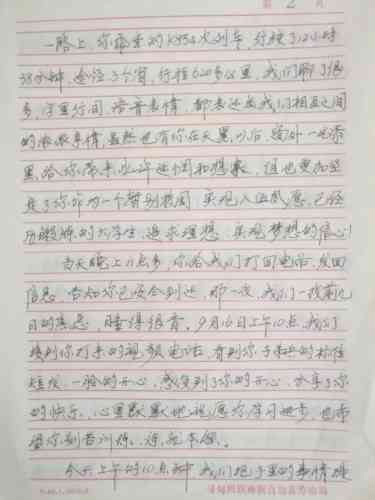 第 2 页
一路上,你乘坐的K452次列车,行驶了12小时
38分钟,途径3个省,行程620多公里,我们聊了很
多,字里行间,语音表情,都表达出我们相互之间
的浓浓亲情,虽然也有你在天黑以后,窗外一片漆
黑,给你带来 ,但也更加坚
定了你作为一个 报国 实现人生 愿,已经
的大学生,追求理想,实现梦想的信心!
当天晚上11点多,你给我们打回电话,发回
信息,告知你已安全到达,那一夜,我们一扫前几
日的焦虑,睡得很香。9月16日上午10点,我们
接到你打来的视频电话,看到你
短发,一脸的开心,感受到了你的开心,分享了你
的快乐,心里默默地祝愿你学习进步,也希
望你刻苦训练,练就本领。
今天上午的10点钟,我们把手里的事情
寻甸回族彝族自治县